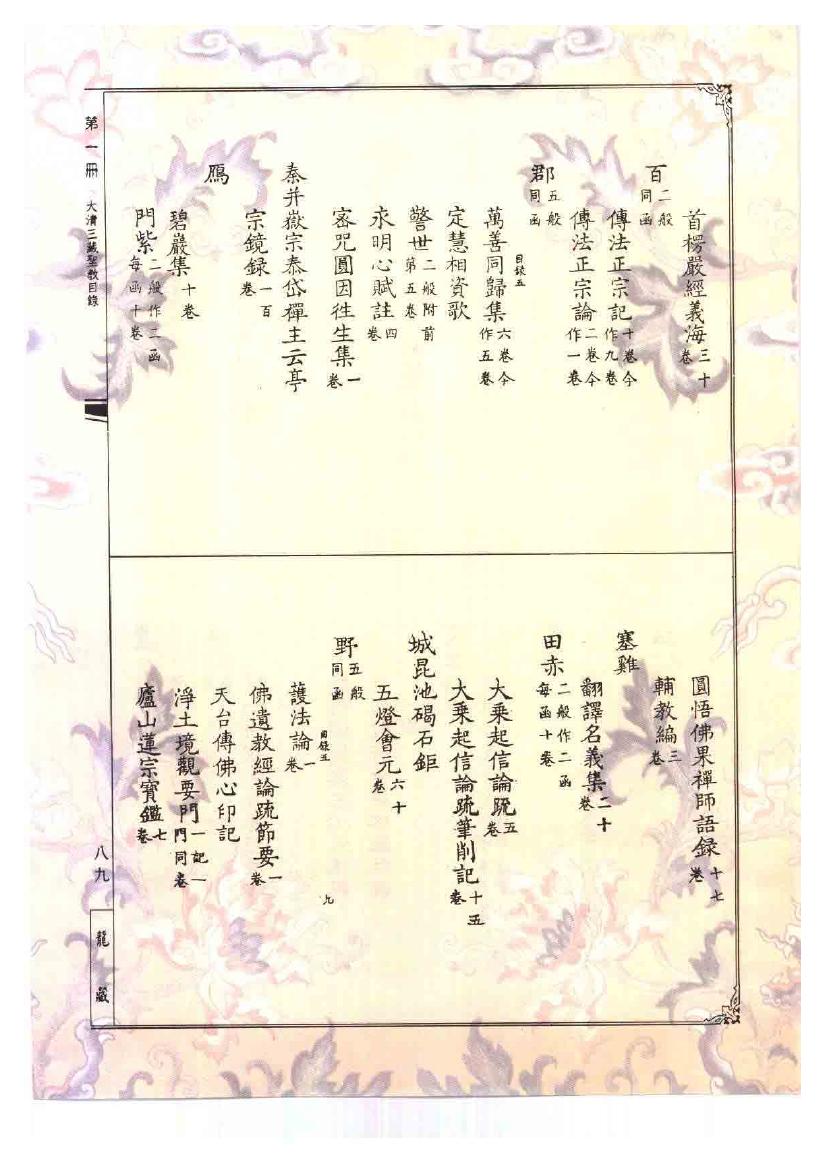 首楞嚴經義海三十卷
百二般同函
傳法正宗記十卷今作九卷
傳法正宗論二卷今作一卷
郡五般同函
目錄五
萬善同歸集六卷今作五卷
定慧相資歌
警世二般附前第五卷
永明心賦註四卷
密咒圓因徃生集一卷
秦并嶽宗泰岱禪主云亭
宗鏡録一百卷
鴈
碧巖集十卷
門紫二般作二函每函十卷
圓悟佛果禪師語録十七卷
輔教編三卷
塞雞
翻譯名義集二十卷
田赤二般作二函每函十卷
大乗起信論䟽五卷
大乗起信論䟽筆削記十五卷
城昆池碣石鉅
五燈會元六十卷
野五般同函
目錄五
九
護法論一卷
佛遺教經論䟽節要一卷
天台傳佛心印記
淨土境觀要門一記一門同卷
廬山蓮宗寶鑑七卷
第一冊 大清三藏聖教目錄
八九
龍藏